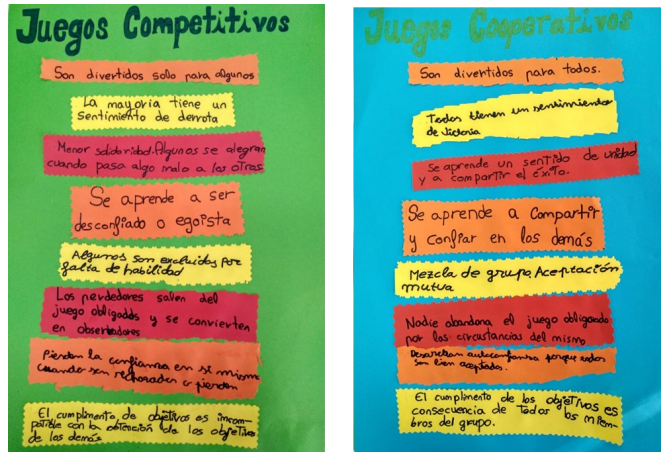 Juegos Competitivos
Son divertidos solo para algunos
La mayoria tiene un
sentimiento de derrota
Menor solidaridad. Algunos se alegran
cuando pasa algo malo a los otros
Se aprende a ser
desconfiado o egoista
Algunos son excluidos por
falta de habilidad
Los perdedores salen del
juego obligados y se convierten
en observadores
Pierden la confianza en si mismo
cuando son rechazados o pierden
El cumplimento, de objetivos es incom-
patible con la obtención de los objetivos
de los demás
Juegos Cooperativos
Son divertidos para todos.
Todos tienen un sentimiento
de victoria
Se aprende un sentido de unidad
y a compartir el éxito.
Se aprende a Compartir
y confiar en los demás
Mezcla de grupo, Aceptación
mutua
Nadie abandona el juego obligado
por las circustancias del mismo
Desarrollan autoconfianza porque todos
son bien aceptados.
El cumplimento de los objetivos es
consecuencia de todos los miem-
bros del grupo.